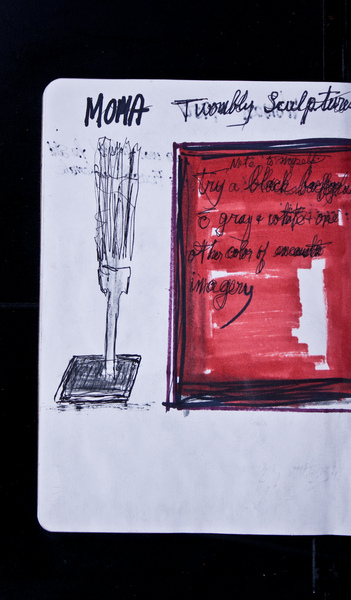 MOMA Twombly Sculptures
Note to myself
try a black backgro
to gray & white & one
other color of encaustic
imagery